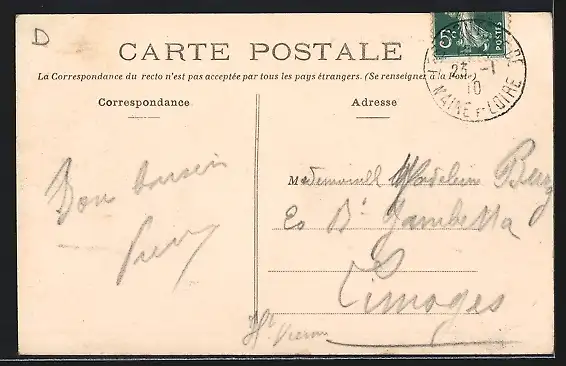 D
CARTE POSTALE
La Correspondance du recto n'est pas acceptée par tous les pays étrangers. (Se renseigner à la Poste)
Correspondance
Adresse
5c POSTES
23 -1
10
MAINE ET LOIRE
Bon
Mademoiselle Madeleine
Bd Gambetta
Limoges
Hte Vienne